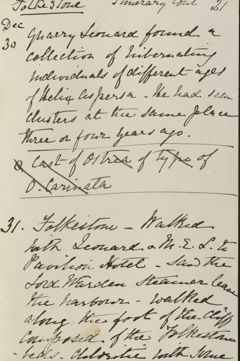 Folkestone Itinerary Cont. 21
Dec
30 Harry Leonard found a
collection of hibernating
individuals of different ages
of Helix aspersa - He had seen
clusters at the same place
three or four years ago.
Cast of Ostrea of type of
O. Carinata
31. Folkestone - Walked
with Leonard & M.E.L. to
Pavilion Hotel - Saw the
Lord Warden Steamer leave
the harbour - walked
along the foot of the Cliff
composed of the Folkestone
beds. Chloritic with some